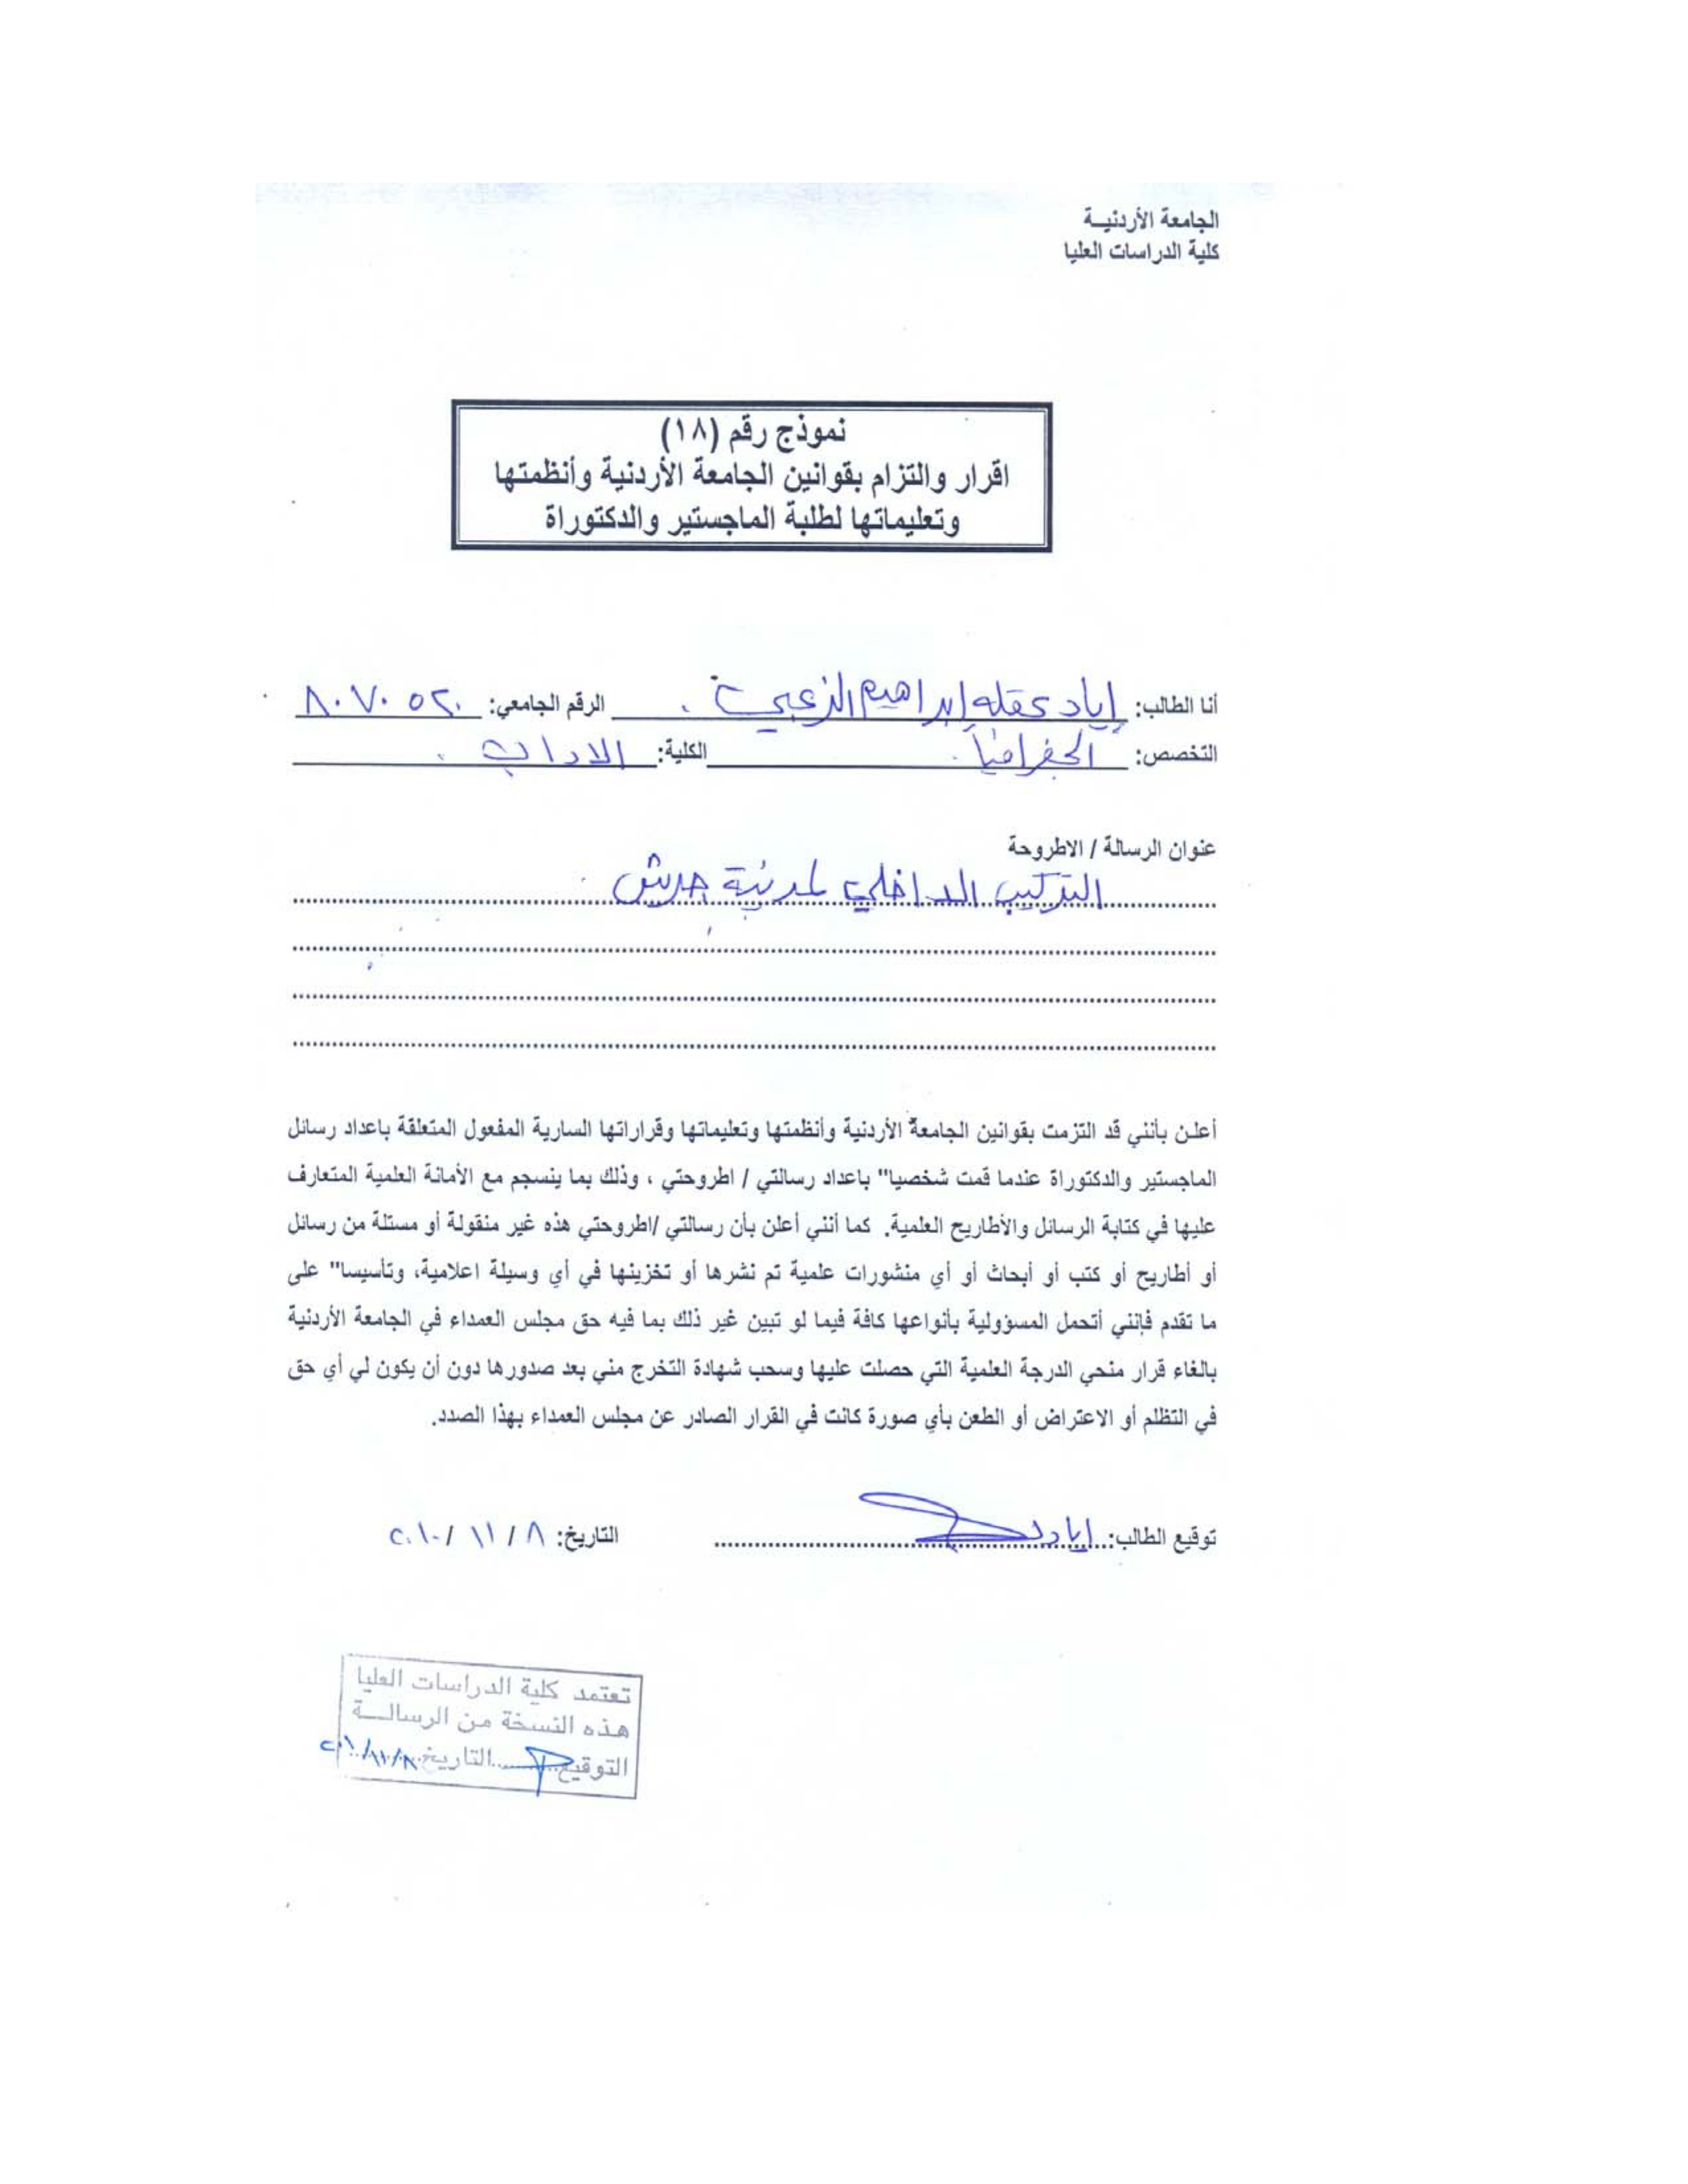 الجامعة الأردنيـة
كلية الدراسات العليا
نموذج رقم (١٨)
اقرار والتزام بقوانين الجامعة الأردنية وأنظمتها
وتعليماتها لطلبة الماجستير والدكتوراة
أنا الطالب: إياد عقله إبراهيم الزعبي. الرقم الجامعي: ٨٠٧٠٥٢٠
التخصص: الجغرافيا. الكلية: الاداب.
عنوان الرسالة / الاطروحة
التركيب الداخلي لمدينة جرش.
أعلن بأنني قد التزمت بقوانين الجامعة الأردنية وأنظمتها وتعليماتها وقراراتها السارية المفعول المتعلقة باعداد رسائل
الماجستير والدكتوراة عندما قمت شخصيا" باعداد رسالتي / اطروحتي ، وذلك بما ينسجم مع الأمانة العلمية المتعارف
عليها في كتابة الرسائل والأطاريح العلمية. كما أنني أعلن بأن رسالتي /اطروحتي هذه غير منقولة أو مستلة من رسائل
أو أطاريح أو كتب أو أبحاث أو أي منشورات علمية تم نشرها أو تخزينها في أي وسيلة اعلامية، وتأسيسا" على
ما تقدم فإنني أتحمل المسؤولية بأنواعها كافة فيما لو تبين غير ذلك بما فيه حق مجلس العمداء في الجامعة الأردنية
بالغاء قرار منحي الدرجة العلمية التي حصلت عليها وسحب شهادة التخرج مني بعد صدورها دون أن يكون لي أي حق
في التظلم أو الاعتراض أو الطعن بأي صورة كانت في القرار الصادر عن مجلس العمداء بهذا الصدد.
توقيع الطالب: إياد التاريخ: ٨ / ١١ / ٢٠١٠
تعتمد كلية الدراسات العليا
هذه النسخة من الرسالـــة
التوقيع التاريخ ٨/١١/٢٠١٠